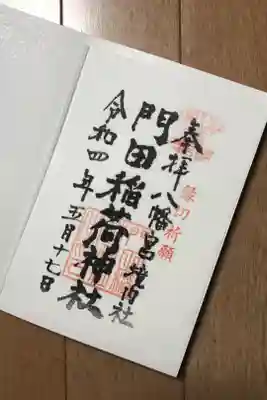 奉拝 八幡宮境内社
縁切祈願
門田稲荷神社
令和四年五月十七日